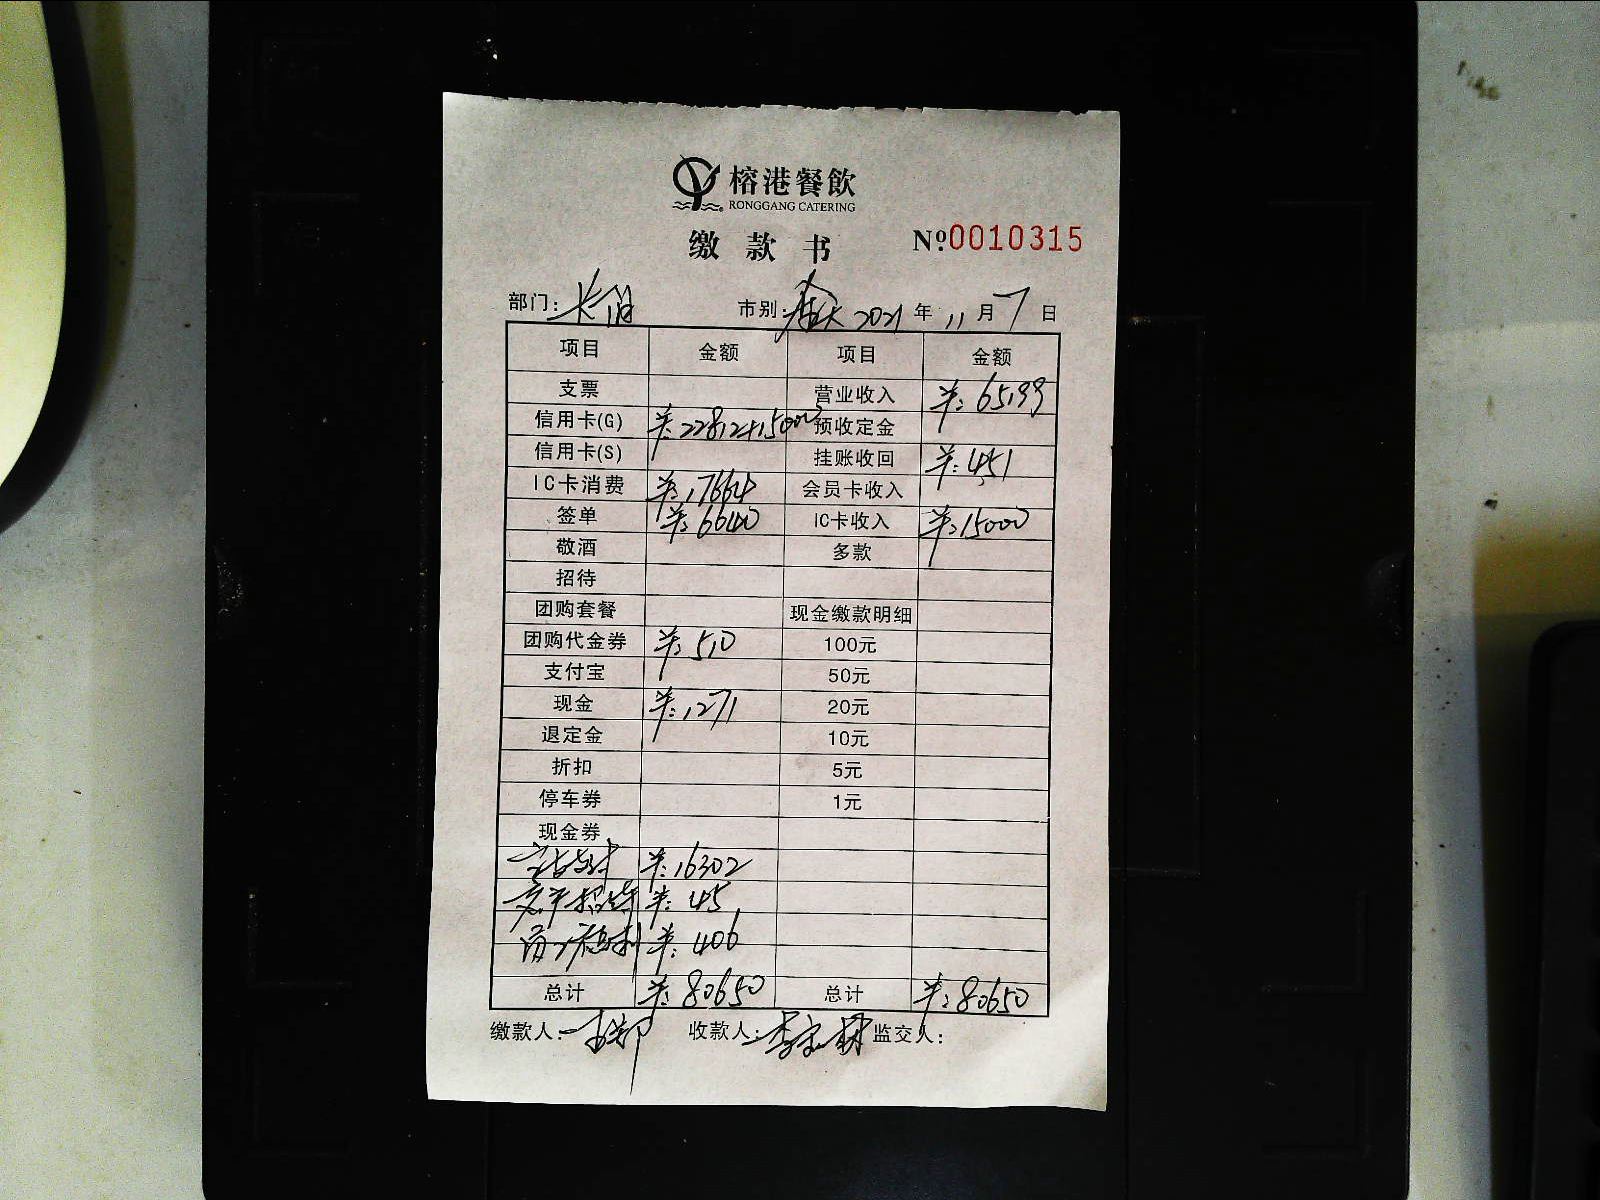 榕港餐飲
RONGGANG CATERING
缴款书 №0010315
部门: 市别: 全天 2021年11月7日
项目 金额 项目 金额
支票 营业收入 ¥:65199
信用卡(G) ¥:22812+15000 预收定金
信用卡(S) 挂账收回 ¥:451
IC卡消费 ¥:17664 会员卡收入
签单 ¥:6640 IC卡收入 ¥:15000
敬酒 多款
招待
团购套餐 现金缴款明细
团购代金券 ¥:510 100元
支付宝 50元
现金 ¥:1271 20元
退定金 10元
折扣 5元
停车券 1元
现金券
¥:16302
招待 ¥:45
¥:406
总计 ¥:80650 总计 ¥:80650
缴款人: 收款人: 监交人: